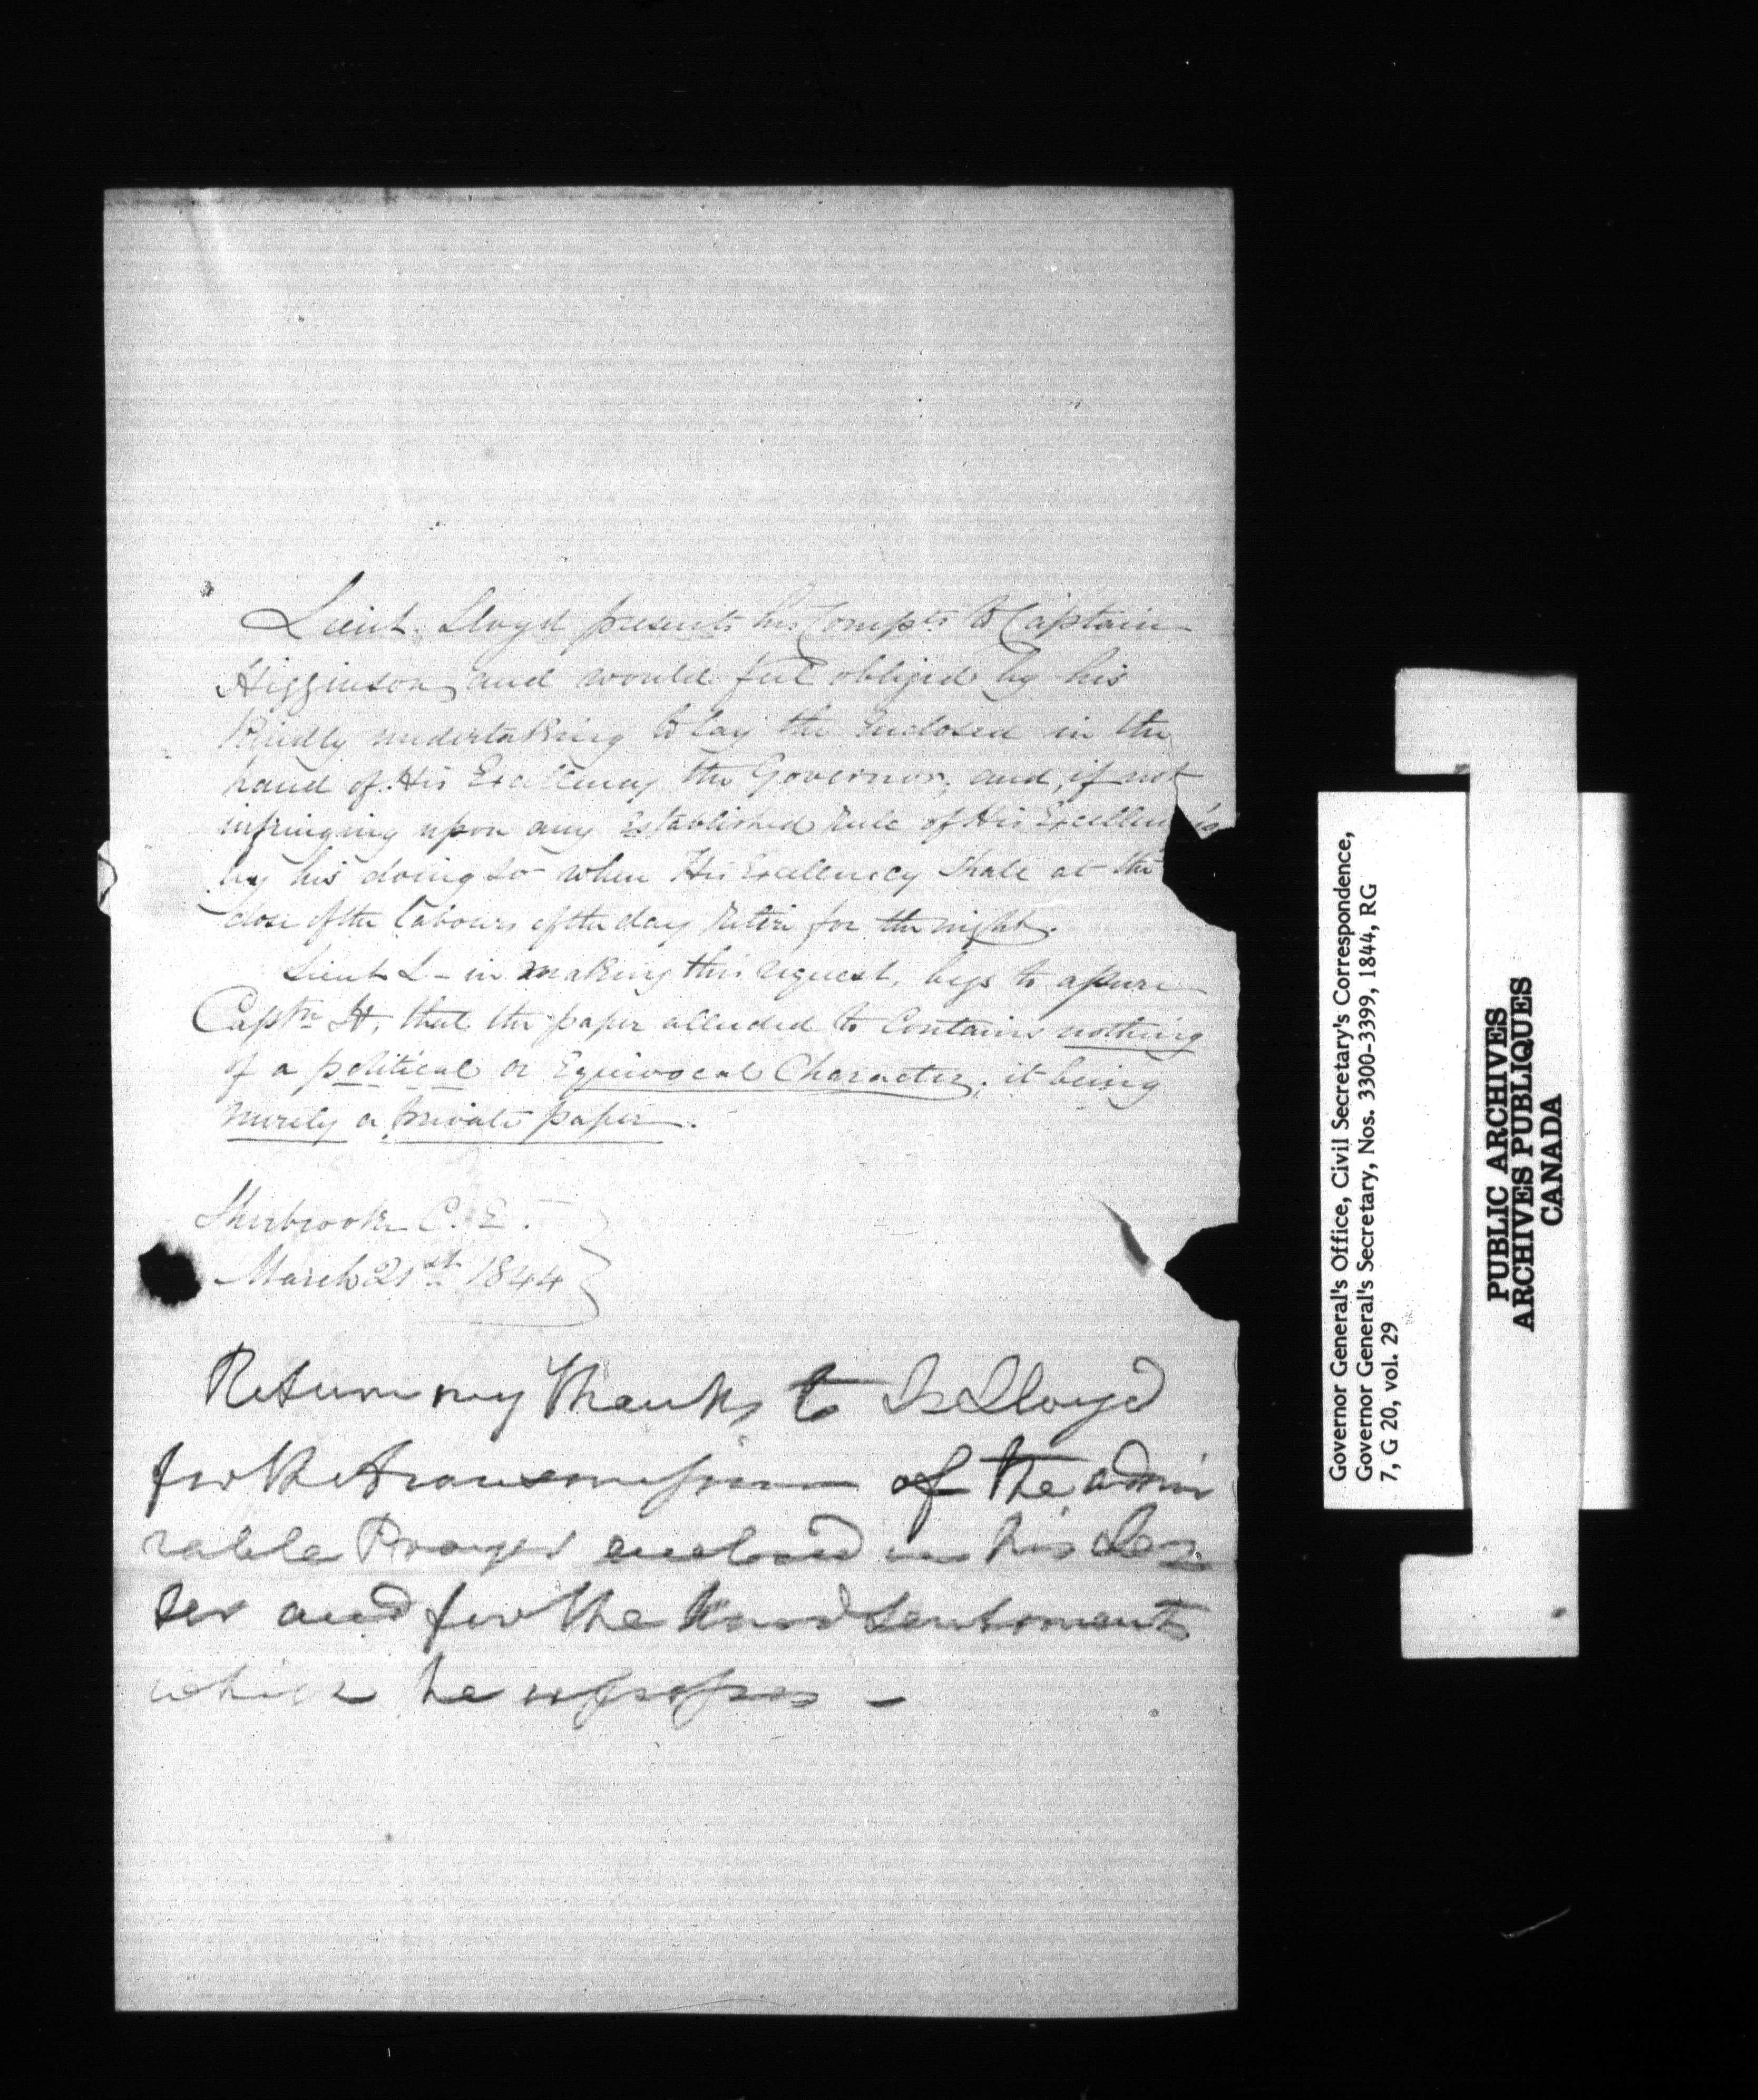 Lieut. Lloyd presents his Compts to Captain
Higginson, and would feel obliged by his
kindly undertaking to lay the enclosed in the
hand of His Excellency the Governor; and, if not
infringing upon any established rule of His Excellency's
by his doing so when His Excellency shall at the
close of the labours of the day retire for the night.
Lieut L - in making this request, begs to assure
Captn H, that the paper alluded to contains nothing
of a political or Equivocal Character; it being
merely a private paper.
Sherbrooke C. E.
March 21st 1844
Return my thanks to Lt Lloyd
for the transmission of the admi
rable Prayer enclosed in his Let
ter and for the kind sentiments
which he expresses -
Governor General's Office, Civil Secretary's Correspondence,
Governor General's Secretary, Nos. 3300-3399, 1844, RG
7, G 20, vol. 29
PUBLIC ARCHIVES
ARCHIVES PUBLIQUES
CANADA